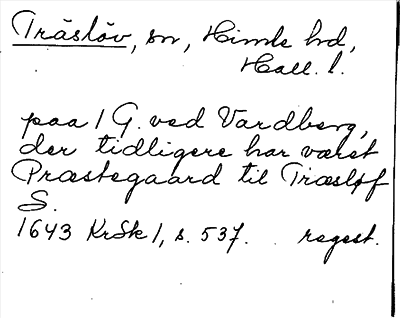 Träslöv, sn, Himle hd,
Hall. l.
paa 1 G. ved Vardberg,
der tidligere har været
Præstegaard til Træsløf
S.
1643 KrSk 1, s. 537. regest.